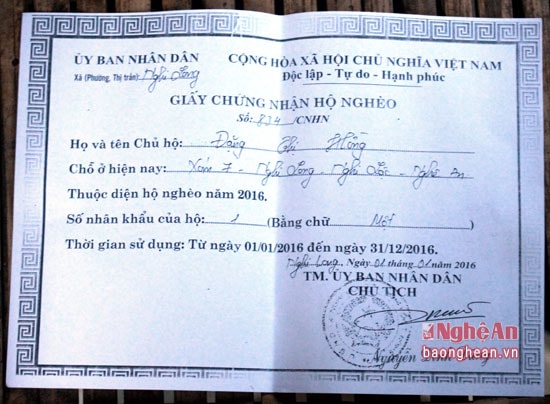 ỦY BAN NHÂN DÂN
Xã (Phường, Thị trấn): Nghi Long
CỘNG HÒA XÃ HỘI CHỦ NGHĨA VIỆT NAM
Độc lập - Tự do - Hạnh phúc
GIẤY CHỨNG NHẬN HỘ NGHÈO
Số: 834 /CNHN
Họ và tên Chủ hộ: Đặng Thị Hồng
Chỗ ở hiện nay: Xóm 7 - Nghi Long - Nghi Lộc - Nghệ An
Thuộc diện hộ nghèo năm 2016.
Số nhân khẩu của hộ: 1 (Bằng chữ Một )
Thời gian sử dụng: Từ ngày 01/01/2016 đến ngày 31/12/2016.
Nghi Long, Ngày 01 tháng 01 năm 2016
TM. ỦY BAN NHÂN DÂN
CHỦ TỊCH
Nghệ An
baonghean.vn
Nguyễn